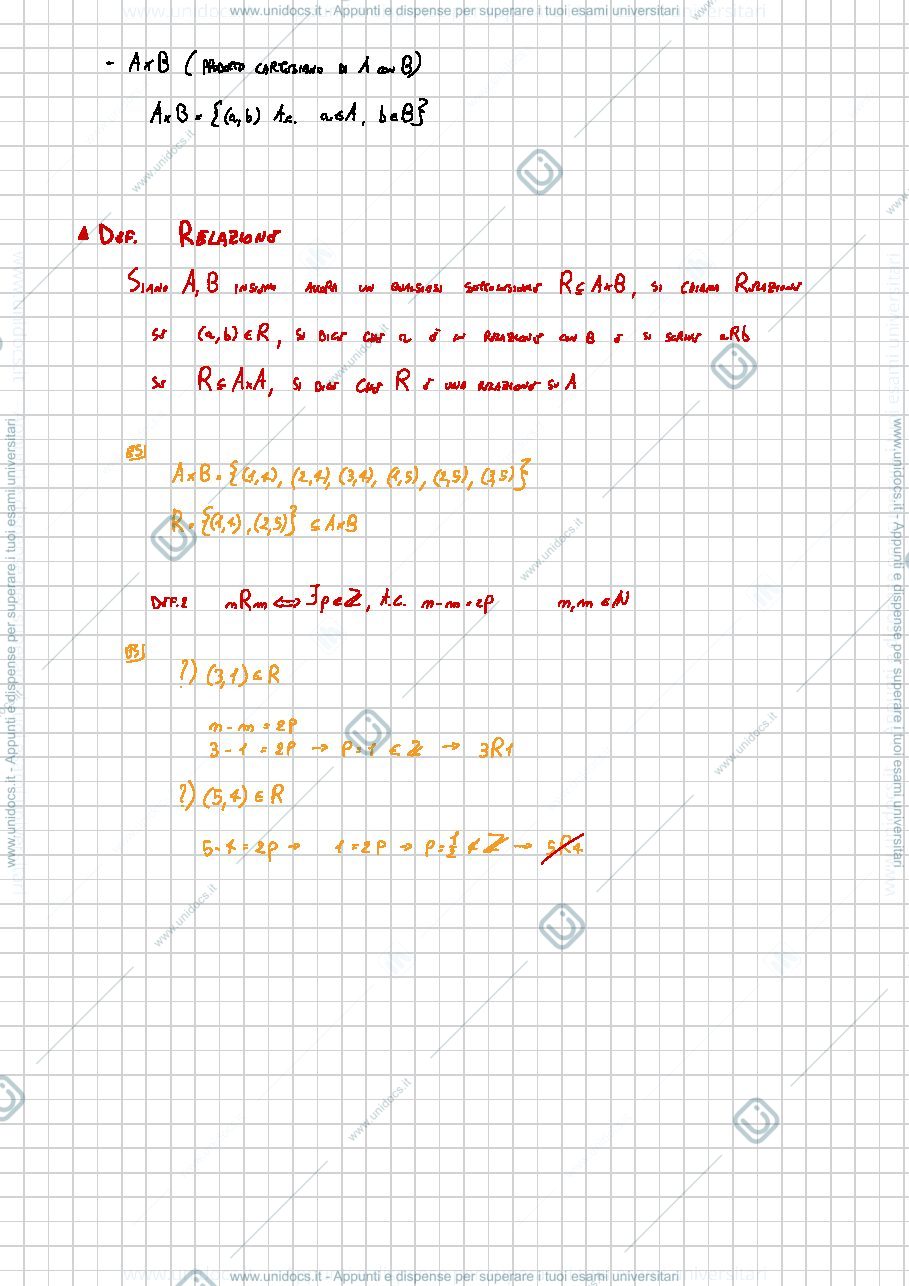 www.unidocs.it - Appunti e dispense per superare i tuoi esami universitari
- A×B ( PRODOTTO CARTESIANO DI A CON B)
A×B = {(a,b) t.c. a∈A, b∈B}
▲ DEF. RELAZIONE
SIANO A, B INSIEMI ALLORA UN QUALSIASI SOTTOINSIEME R⊆A×B, SI CHIAMA RELAZIONE
SE (a,b)∈R, SI DICE CHE a È IN RELAZIONE CON B E SI SCRIVE aRb
SE R⊆A×A, SI DICE CHE R È UNA RELAZIONE SU A
ES
A×B = {(1,4), (2,4), (3,4), (1,5), (2,5), (3,5)}
R = {(1,4), (2,5)} ⊆A×B
DEF.2 nRm ⟺ ∃p∈ℤ, t.c. n-m = 2p n,m ∈ ℕ
ES
?) (3,1)∈R
n-m = 2p
3-1 = 2p → p=1 ∈ ℤ → 3R1
?) (5,4)∈R
5-4=2p → 1=2p → p=1/2 ∉ ℤ → 5R4
www.unidocs.it - Appunti e dispense per superare i tuoi esami universitari
www.unidocs.it - Appunti e dispense per superare i tuoi esami universitari
www.unidocs.it - Appunti e dispense per superare i tuoi esami universitari
www.unidocs.it
www.unidocs.it
www.unidocs.it
www.unidocs.it
www.unidocs.it
www.unidocs.it